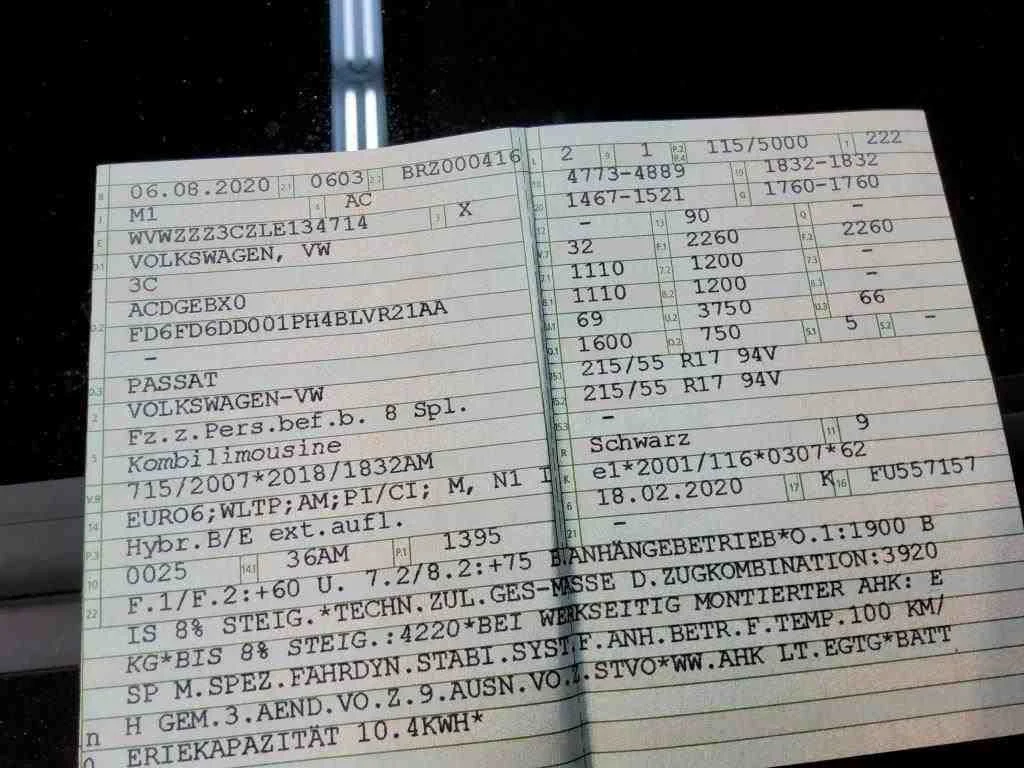 B 06.08.2020 2.1 0603 2.2 BRZ000416
J M1 4 AC
E WVWZZZ3CZLE134714 3 X
D.1 VOLKSWAGEN, VW
3C
D.2 ACDGEBX0
FD6FD6DD001PH4BLVR21AA
-
D.3 PASSAT
2 VOLKSWAGEN-VW
5 Fz.z.Pers.bef.b. 8 Spl.
Kombilimousine
V.9 715/2007*2018/1832AM
14 EURO6;WLTP;AM;PI/CI; M, N1 I
P.3 Hybr.B/E ext.aufl.
10 0025 14.1 36AM P.1 1395
L 2 9 1 P.2 P.4 115/5000 T 222
18 4773-4889 19 1832-1832
20 1467-1521 G 1760-1760
12 - 13 90 Q -
V.7 32 F.1 2260 F.2 2260
7.1 1110 7.2 1200 7.3 -
8.1 1110 8.2 1200 8.3 -
U.1 69 U.2 3750 U.3 66
O.1 1600 O.2 750 S.1 5 S.2 -
15.1 215/55 R17 94V
15.2 215/55 R17 94V
15.3 -
R Schwarz 11 9
K e1*2001/116*0307*62
6 18.02.2020 17 K 16 FU557157
21 -
22 F.1/F.2:+60 U. 7.2/8.2:+75 B.ANHÄNGEBETRIEB*O.1:1900 B
IS 8% STEIG.*TECHN.ZUL.GES-MASSE D.ZUGKOMBINATION:3920
KG*BIS 8% STEIG.:4220*BEI WERKSEITIG MONTIERTER AHK: E
SP M.SPEZ.FAHRDYN.STABI.SYST.F.ANH.BETR.F.TEMP.100 KM/
H GEM.3.AEND.VO.Z.9.AUSN.VO.Z.STVO*WW.AHK LT.EGTG*BATT
ERIEKAPAZITÄT 10.4KWH*